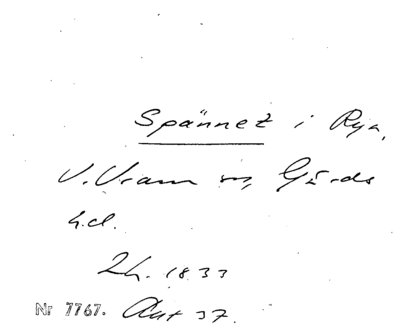 Spännet i Rya,
V. Vram sn, Gärds
h.d.
2h. 1833
Nr 7767. Aut 37.